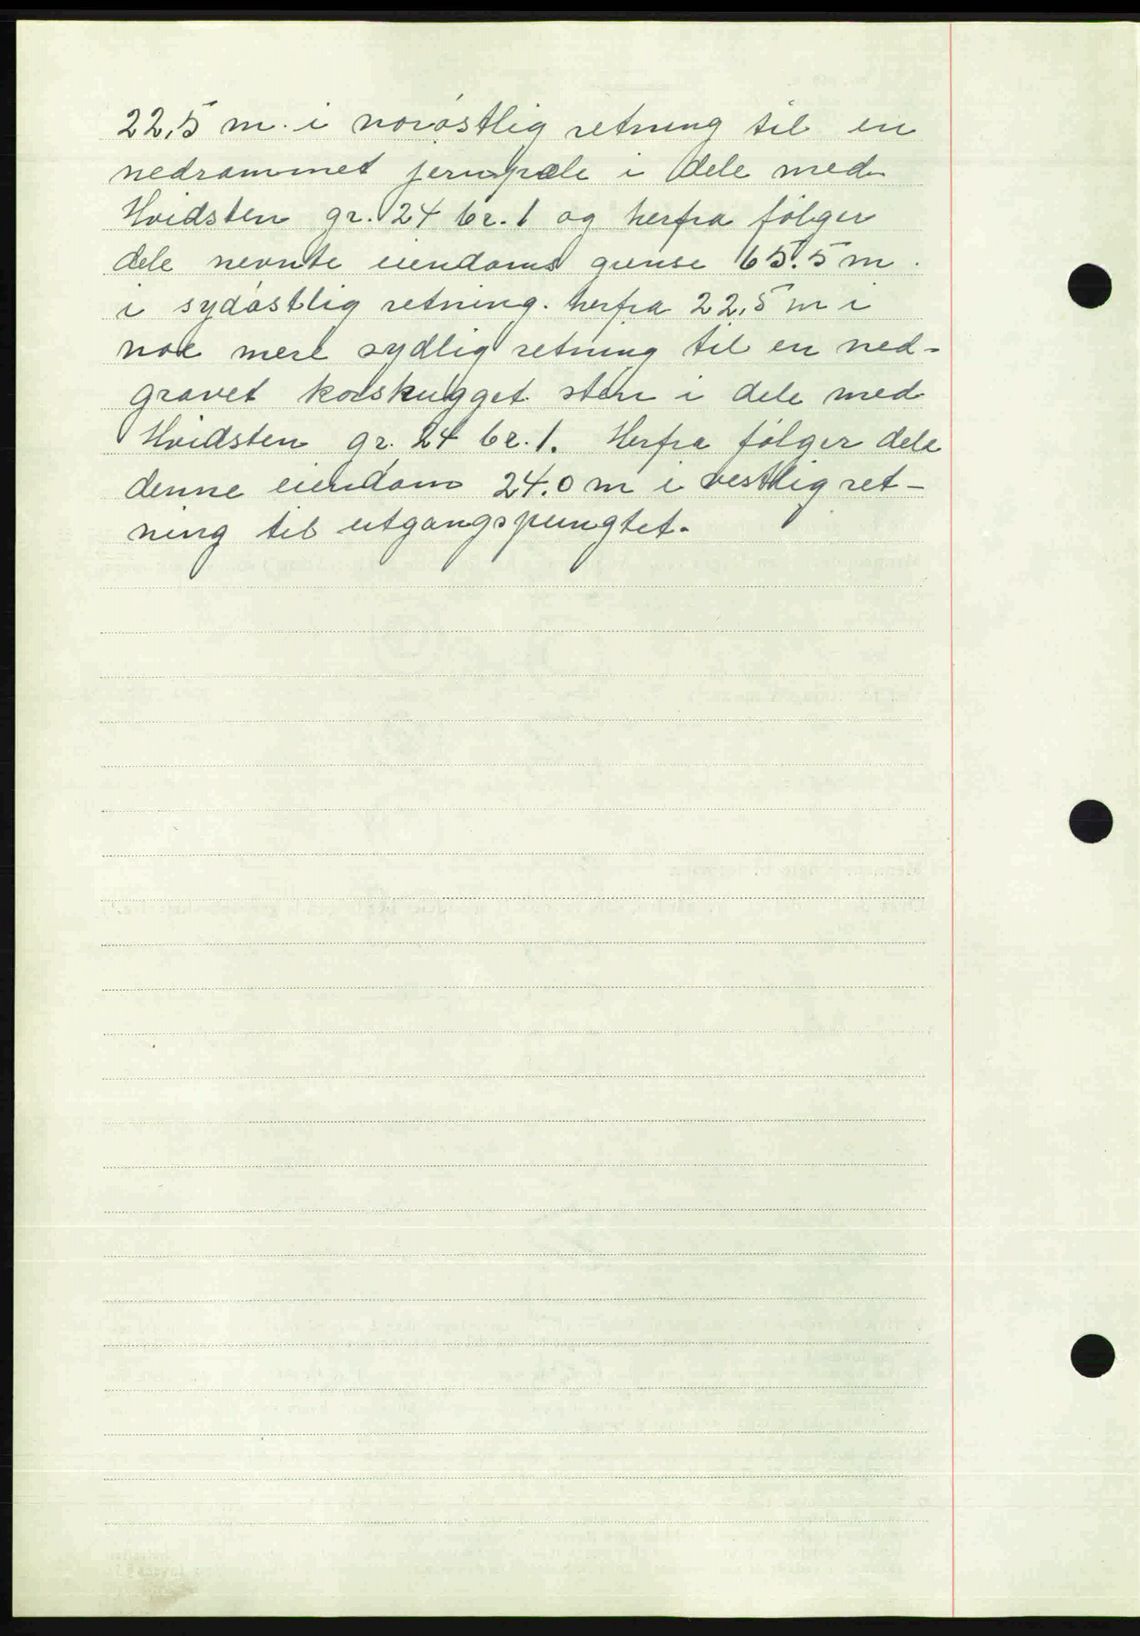 22,5 m. i norøstlig retning til en
nedrammet jernpæle i dele med
Hvidsten gr. 24 br. 1 og herfra følger
dele nevnte eiendoms grense 65.5 m.
i sydøstlig retning. herfra 22,5 m i
noe mere sydlig retning til en ned-
gravet korshugget sten i dele med
Hvidsten gr. 24 br. 1. Herfra følger dele
denne eiendom 24.0 m i vestlig ret-
ning til utgangspungtet.